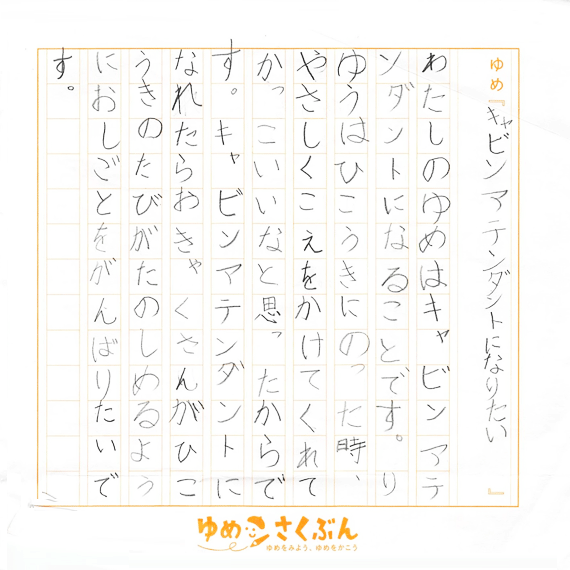 ゆめ『キャビンアテンダントになりたい』
わたしのゆめはキャビンアテ
ンダントになることです。り
ゆうはひこうきにのった時、
やさしくこえをかけてくれて
かっこいいなと思ったからで
す。キャビンアテンダントに
なれたらおきゃくさんがひこ
うきのたびがたのしめるよう
におしごとをがんばりたいで
す。
ゆめさくぶん
ゆめをみよう、ゆめをかこう